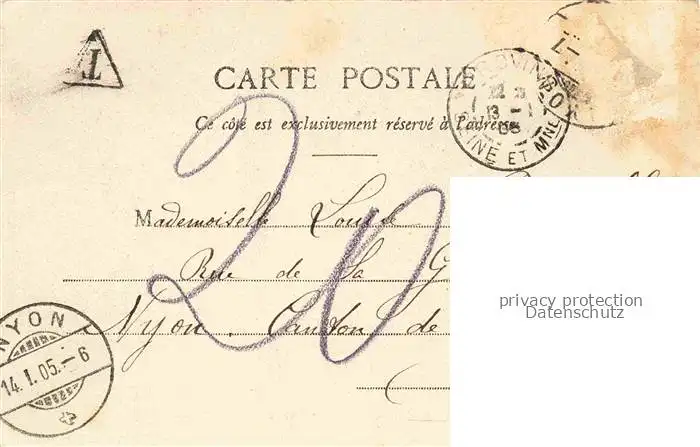 T
CARTE POSTALE
Ce côté est exclusivement réservé à l'adresse
22
13 - 1
05
INE ET MNE
Mademoiselle Louise
Rue de La G
Nyon, Canton de
20
privacy protection
Datenschutz
NYON
14.I.05.-6